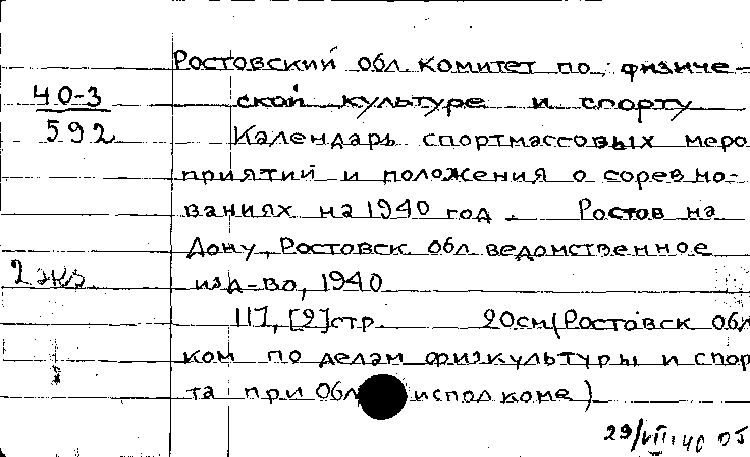 Ростовский обл. комитет по физиче-
40-3
ской культуре и спорту
592
Календарь спортмассовых меро
приятий и положения о соревно-
ваниях на 1940 год. Ростов на
Дону, Ростовск. обл. ведомственное
2 экз.
изд-во, 1940
117, [2]стр. 20см (Ростовск обл
ком по делам физкультуры и спор
та при Обл исполкоме)
29/VII-40